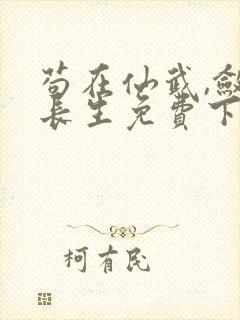 苟在仙武,敛
长生免费下
柯有民